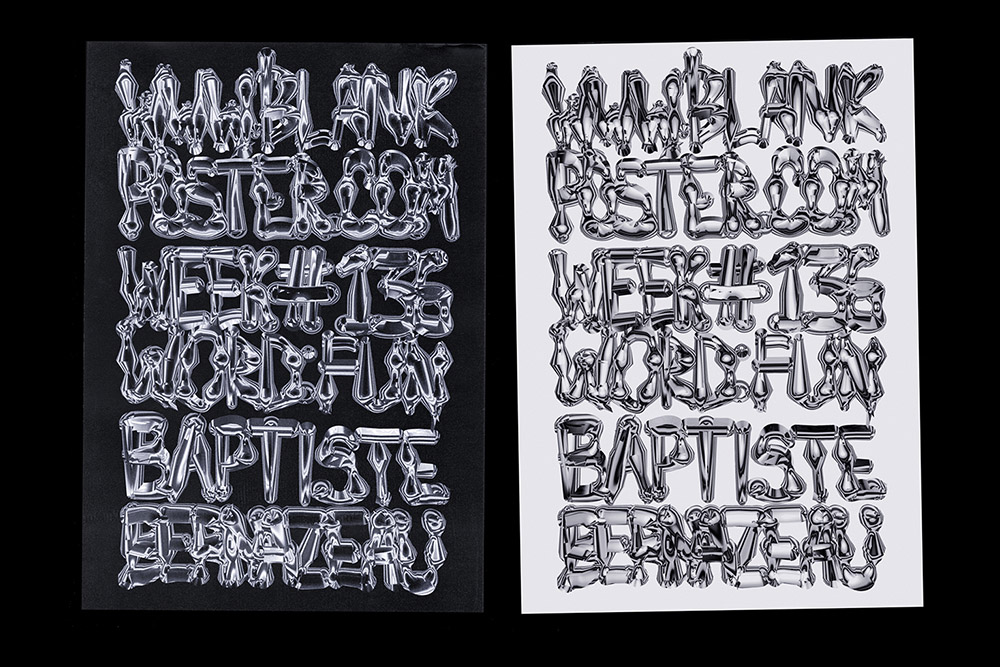 WWW.BLANK
POSTER.COM
WEEK#136
WORD:
BAPTISTE
BERNAZEAU
WWW.BLANK
POSTER.COM
WEEK#136
WORD:
BAPTISTE
BERNAZEAU